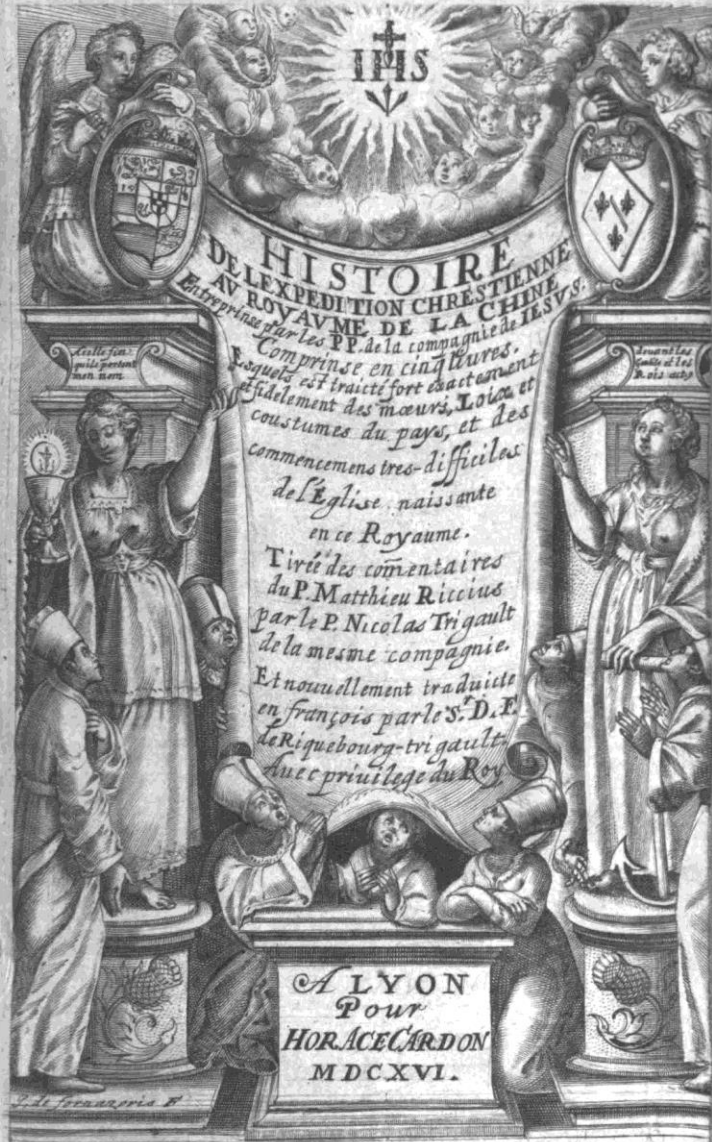 IHS
HISTOIRE
DE LEXPEDITION CHRESTIENNE
AV ROYAVME DE LA CHINE
Entreprinse par les PP. de la compagnie de IESVS.
Comprinse en cinq liures.
Esquels est traicté fort exactement
et fidelement des mœurs, Loix, et
coustumes du pays, et des
commencemens tres-difficiles
de l'Église naissante
en ce Royaume.
Tirée des com̄entaires
du P. Matthieu Riccius
par le P. Nicolas Trigault
de la mesme compagnie.
Et nouuellement traduicte
en françois par le Sr. D. F.
de Riquebourg-trigault.
Auec priuilege du Roy
qu'ils portent
mon nom
deuant les
et les
Rois
A LYON
Pour
HORACE CARDON
MDCXVI.